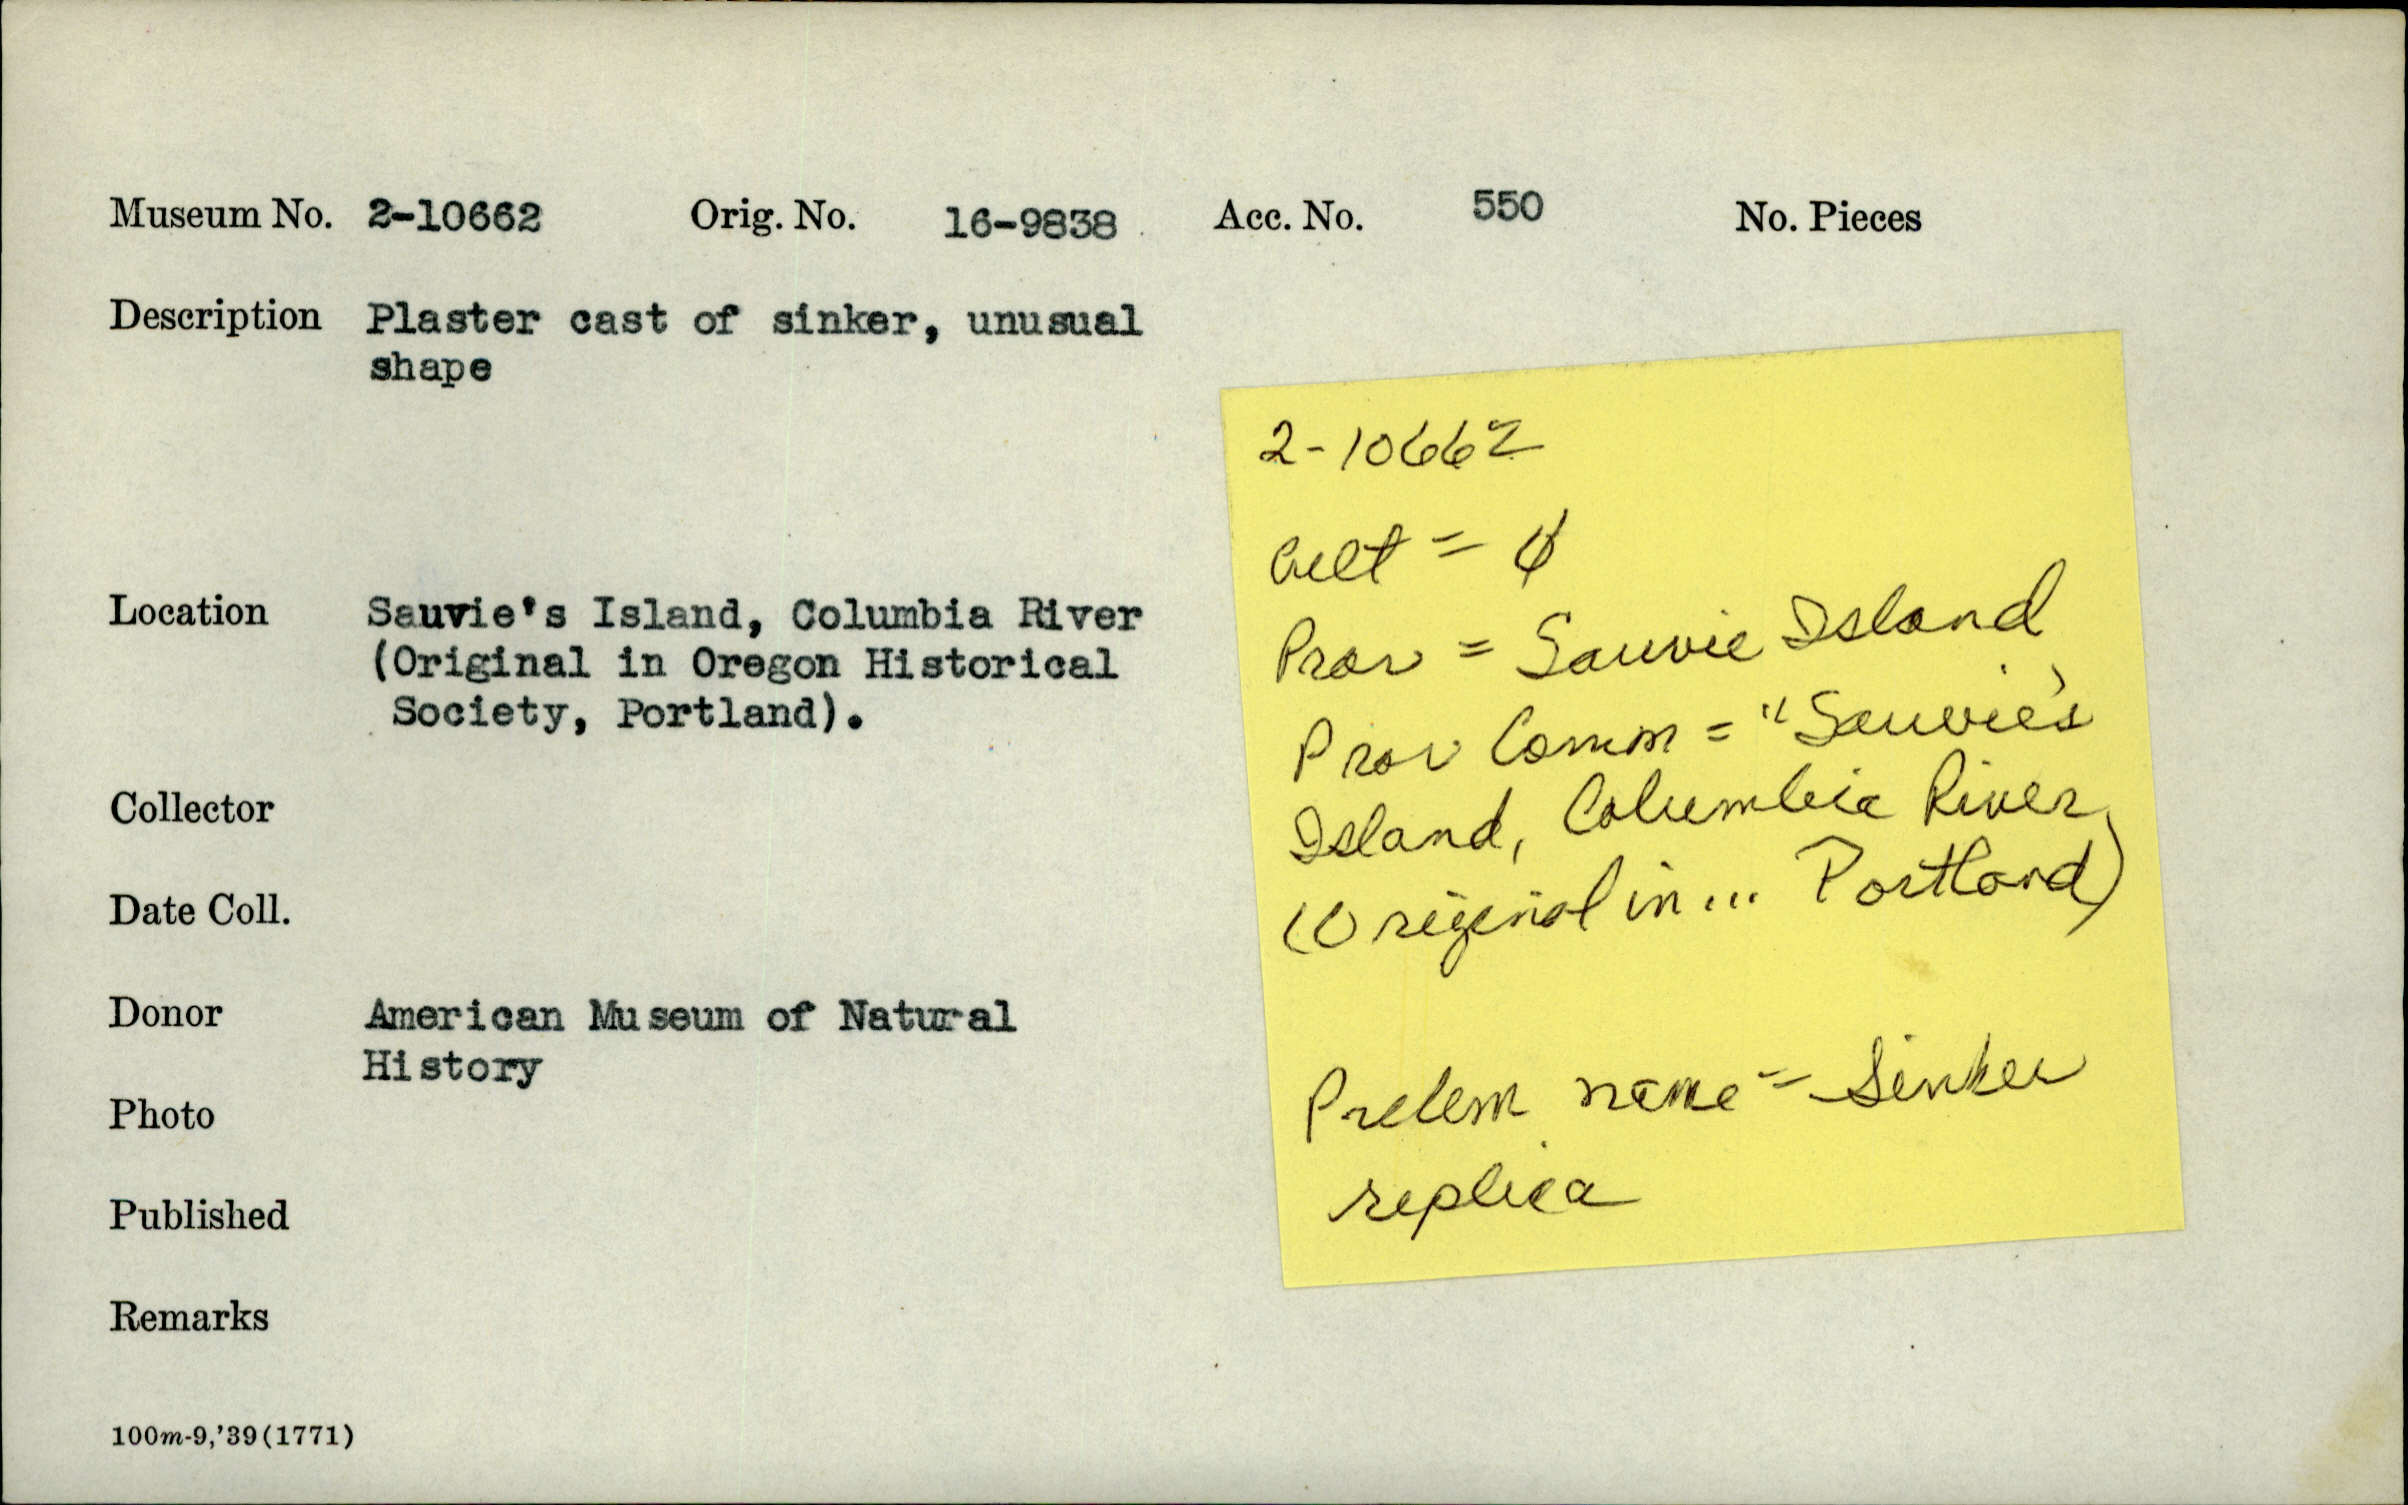 Museum No. 2-10662 Orig. No. 16-9838 Acc. No. 550 No. Pieces
Description Plaster cast of sinker, unusual
shape
Location Sauvie's Island, Columbia River
(Original in Oregon Historical
Society, Portland).
Collector
Date Coll.
Donor American Museum of Natural
History
Photo
Published
Remarks
100m-9,'39(1771)
2-10662
Cult = ∅
Prov = Sauvie Island
Prov Comm = "Sauvie's
Island, Columbia River
(Original in ... Portland)
Prelem name = Sinker
replica